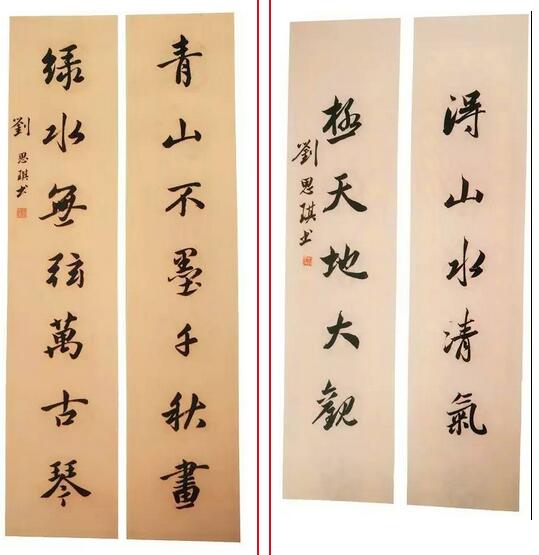 青山不墨千秋畫
绿水無弦萬古琴
劉思琪书
得山水清氣
極天地大觀
劉思琪书